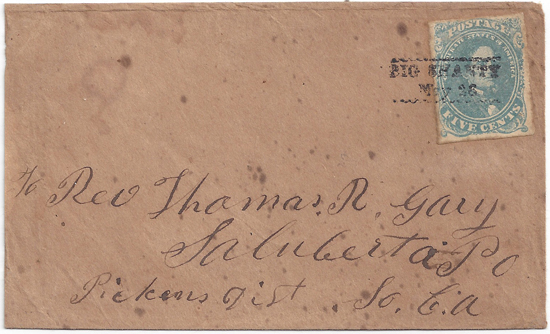 POSTAGE
CONFEDERATE STATES OF AMERICA
FIVE CENTS
BIG SHANTY
May 26
To Rev Thomas. R. Gary
Saluberta Po
Pickens Dist. So. Ca